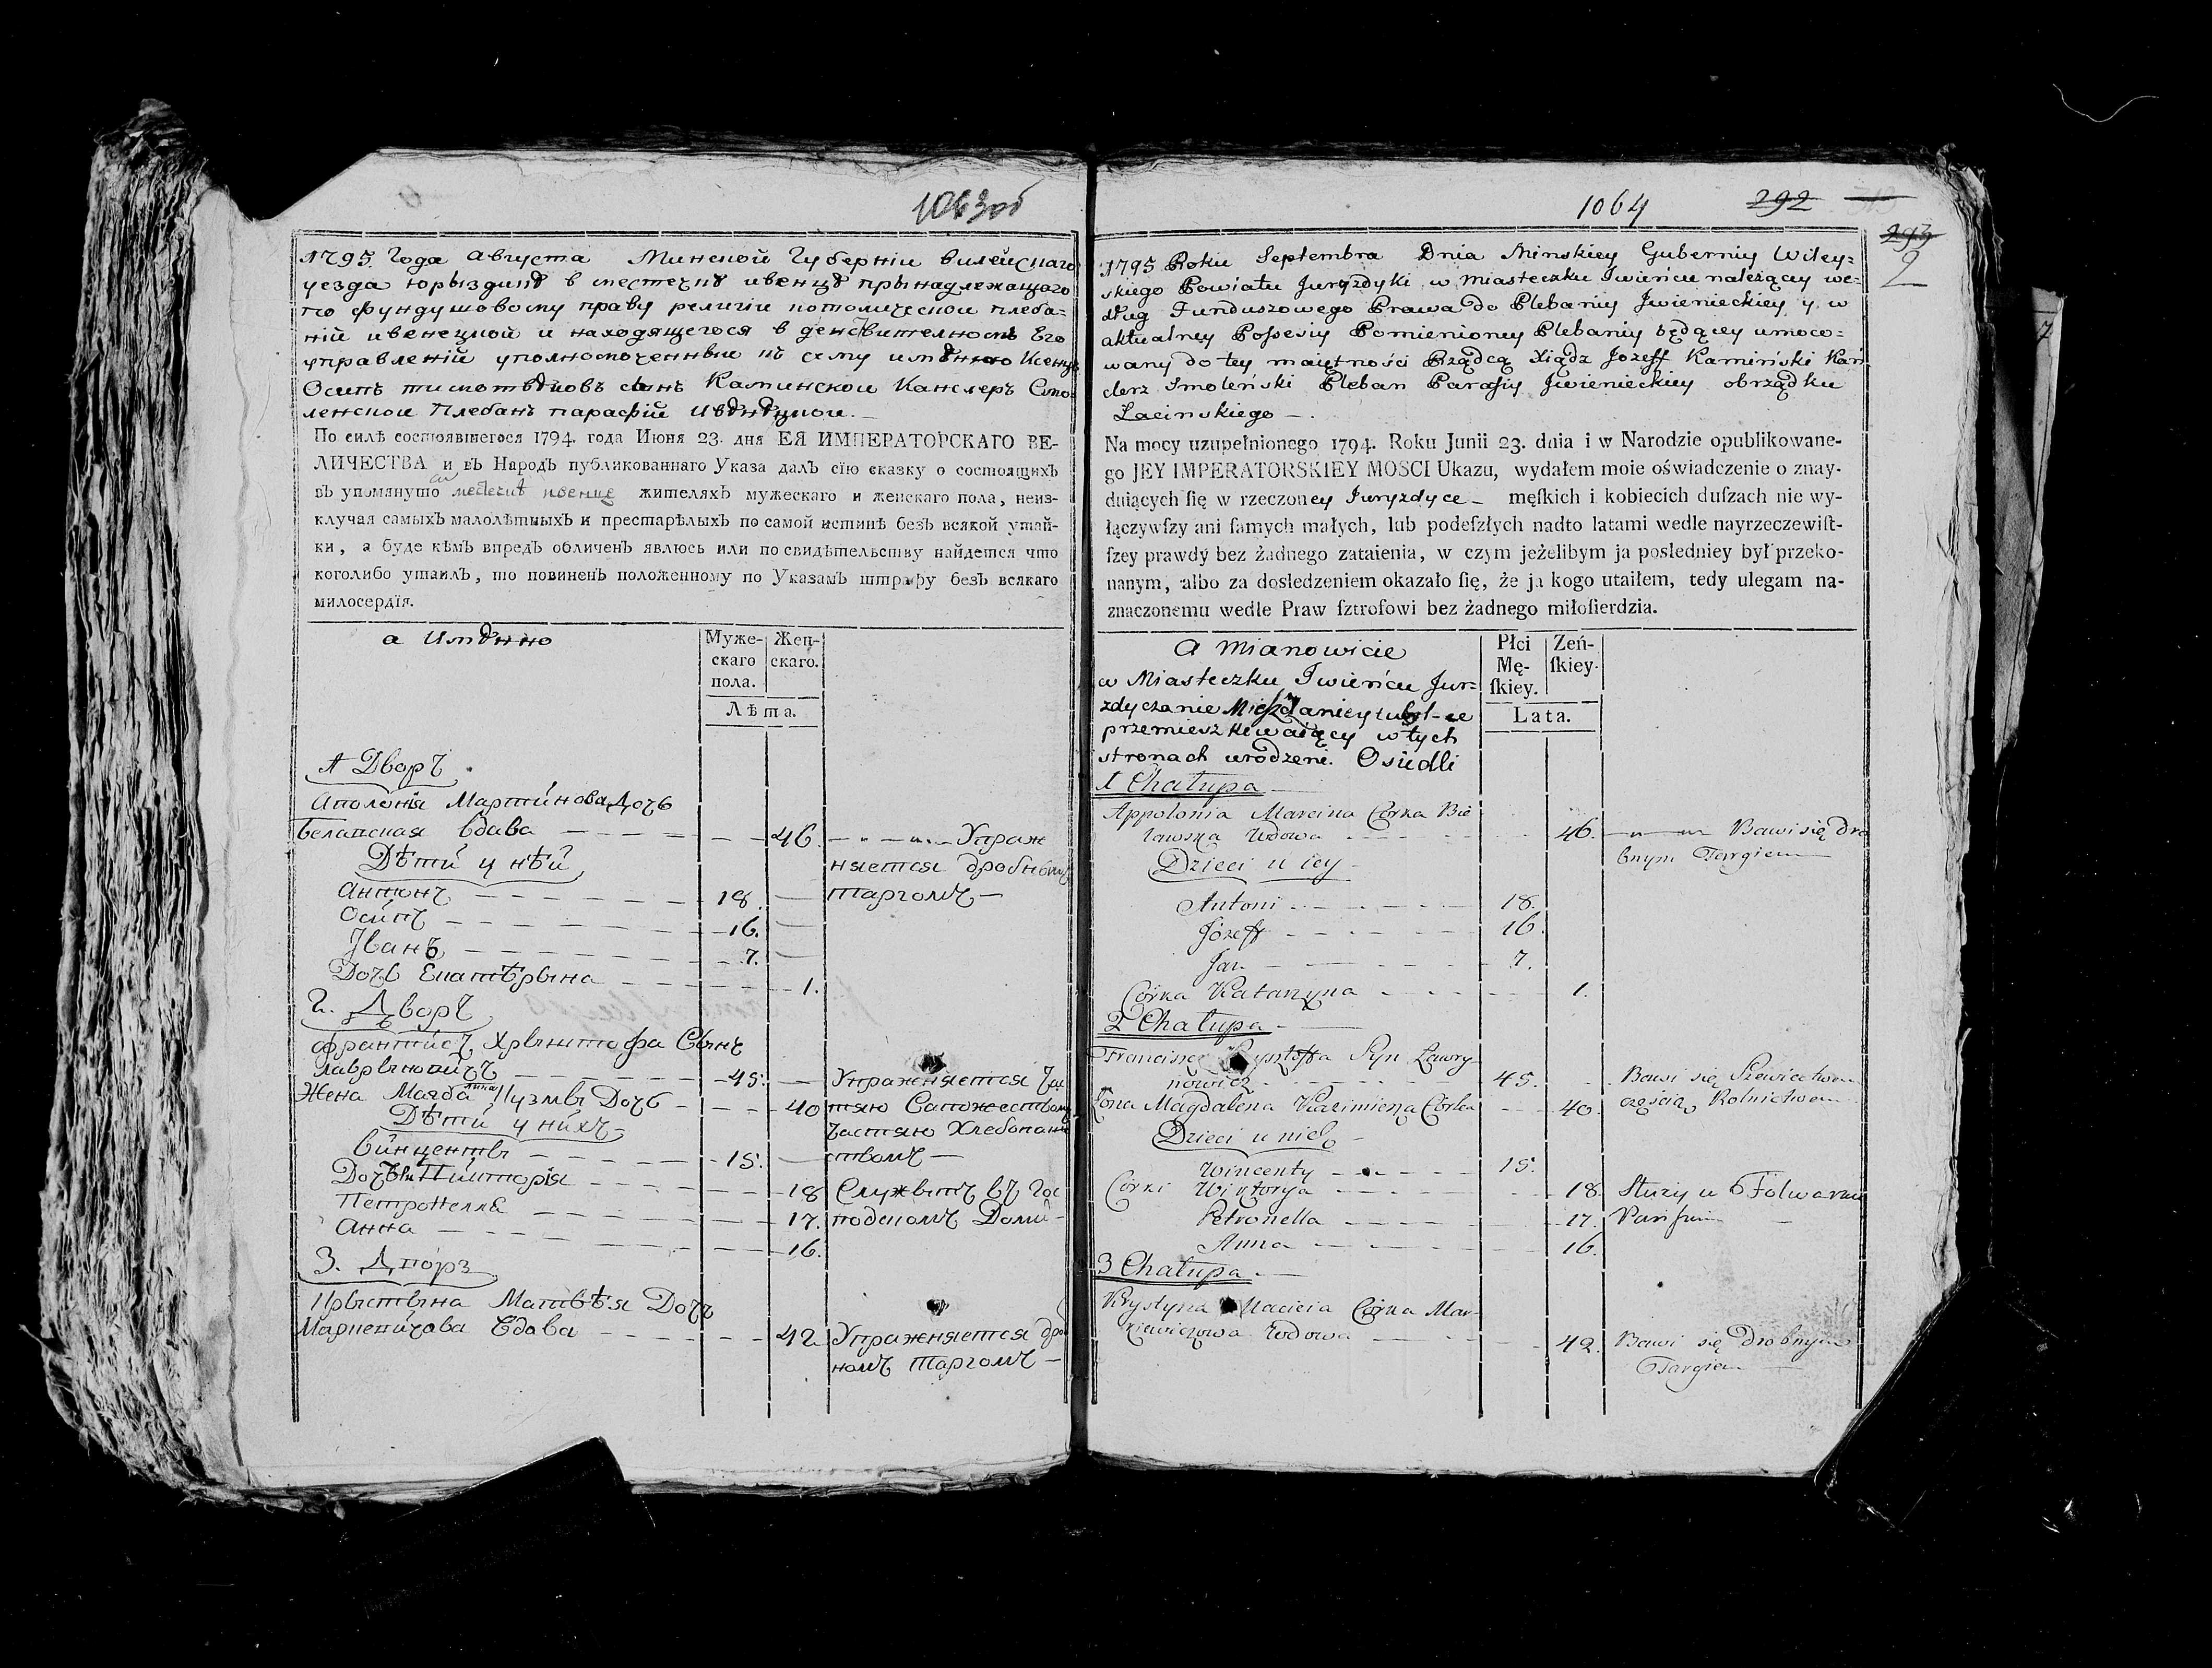 1063об
1795. Года Августа Минской Губерніи вилейскаго
уезда юрыздикѣ в местечкѣ ивенцѣ прынадлежащаго
по фундушовому праву религіи католической плеба=
ніи ивенецкой и находящегося в действителности Его
управленій уполномоченный къ сему имѣнию Ксендз
Осипъ тимотѣиовъ сынъ Каминской Канслеръ Смо=
ленской Плебанъ парафіи Ивѣнѣцкой.
По силѣ состоявшегося 1794. года Июня 23. дня ЕЯ ИМПЕРАТОРСКАГО ВЕ-
ЛИЧЕСТВА и въ Народъ публикованнаго Указа далъ сїю сказку о состоящихъ
въ упомянуто м местечкѣ ивенце жителяхъ мужескаго и женскаго пола, неиз-
ключая самыхъ малолѣтныхъ и престарѣлыхъ по самой истинѣ безъ всякой утай-
ки, а буде кѣмъ впредъ обличенъ явлюсь или по свидѣтельству найдется что
коголибо утаилъ, то повиненъ положенному по Указамъ штрафу безъ всякаго
милосердїя.
а имѣнно
Муже-
скаго
пола.
Жен-
скаго.
Лѣта.
1 Дворъ
Аполонія Мартинова Дочь
Белапская вдава 46. Упраж
няется дробнымъ
Дѣти у нѣй
Антонъ 18. таргомъ
Осипъ 16.
Іванъ 7.
Дочь Екатѣрына 1.
2. Дворъ
Францишъ Хрыштофа Сынъ
Лаврыновичъ 45. Упражняется Ча
Жена Магдалина Кузмы Дочь 40 тяю Сапожествомъ
Дѣти у нихъ частяю Хлебопаше
Винценты 15. твомъ
Дочѣи Виктория 18 Служытъ въ Гос
Петронелля 17. подскомъ Доме
Анна 16.
3. Дворъ
Крыстына Матвѣя Дочь
Марцевичова Вдава 42 Упражняется дро
номъ Таргомъ
1064 292 313
293
2
1795 Roku Septembra Dnia Minskiey Guberniy Wiley=
skiego Powiatu Juryzdyki w miasteczku Iwieńcu należący we=
dług Funduszowego Prawa do Plebaniy Iwienieckiey y w
aktualney Possesiy Pomienioney Plebaniy będącey umoco=
wany do tey maiętności Rządcą Xiądz Jozeff Kamiński Kan
clerz Smoleński Pleban Parafiy Iwienieckiey obrządku
Łacinskiego
Na mocy uzupełnionego 1794. Roku Junii 23. dnia i w Narodzie opublikowane-
go JEY IMPERATORSKIEY MOSCI Ukazu, wydałem moie oświadczenie o znay-
duiących ſię w rzeczoney Juryzdyce męſkich i kobiecich duſzach nie wy-
łączywſzy ani ſamych małych, lub podeſzłych nadto latami wedle nayrzeczewiſt-
ſzey prawdy bez żadnego zataienia, w czym jeżelibym ja posledniey był przeko-
nanym, albo za dosledzeniem okazało ſię, że ja kogo utaiłem, tedy ulegam na-
znaczonemu wedle Praw ſztrofowi bez żadnego miłoſierdzia.
A mianowicie
Płci
Mę-
ſkiey.
Zeń-
ſkiey.
Lata.
w Miasteczku Iwieńcu Jur=
zdyczanie Mieszczanicy tubyl-ce
przemieszkiwaiący w tych
stronach urodzeni. Osiedli
1 Chałupa
Appolonia Marcina Córka Bie
ławska Wdowa 46. Bawi się dro
bnym Targiem
Dzieci u iey
Antoni 18.
Józeff 16.
Jan 7.
Córka Katarzyna 1.
2 Chałupa
Franciszek Krysztoffa Syn Ławry-
nowicz 45. Bawi się Szewiectwem
Żona Magdalena Kazimierza Córka 40. częścią Rolnictwem
Dzieci u nich
Wincenty 15.
Córki Wiktorya 18. Służy u Folwarku
Petronella 17. Pańskim
Anna 16.
3 Chałupa
Krystyna Macieia Córka Mar-
ciewiczowa Wdowa 42. Bawi się Drobnym
Targiem